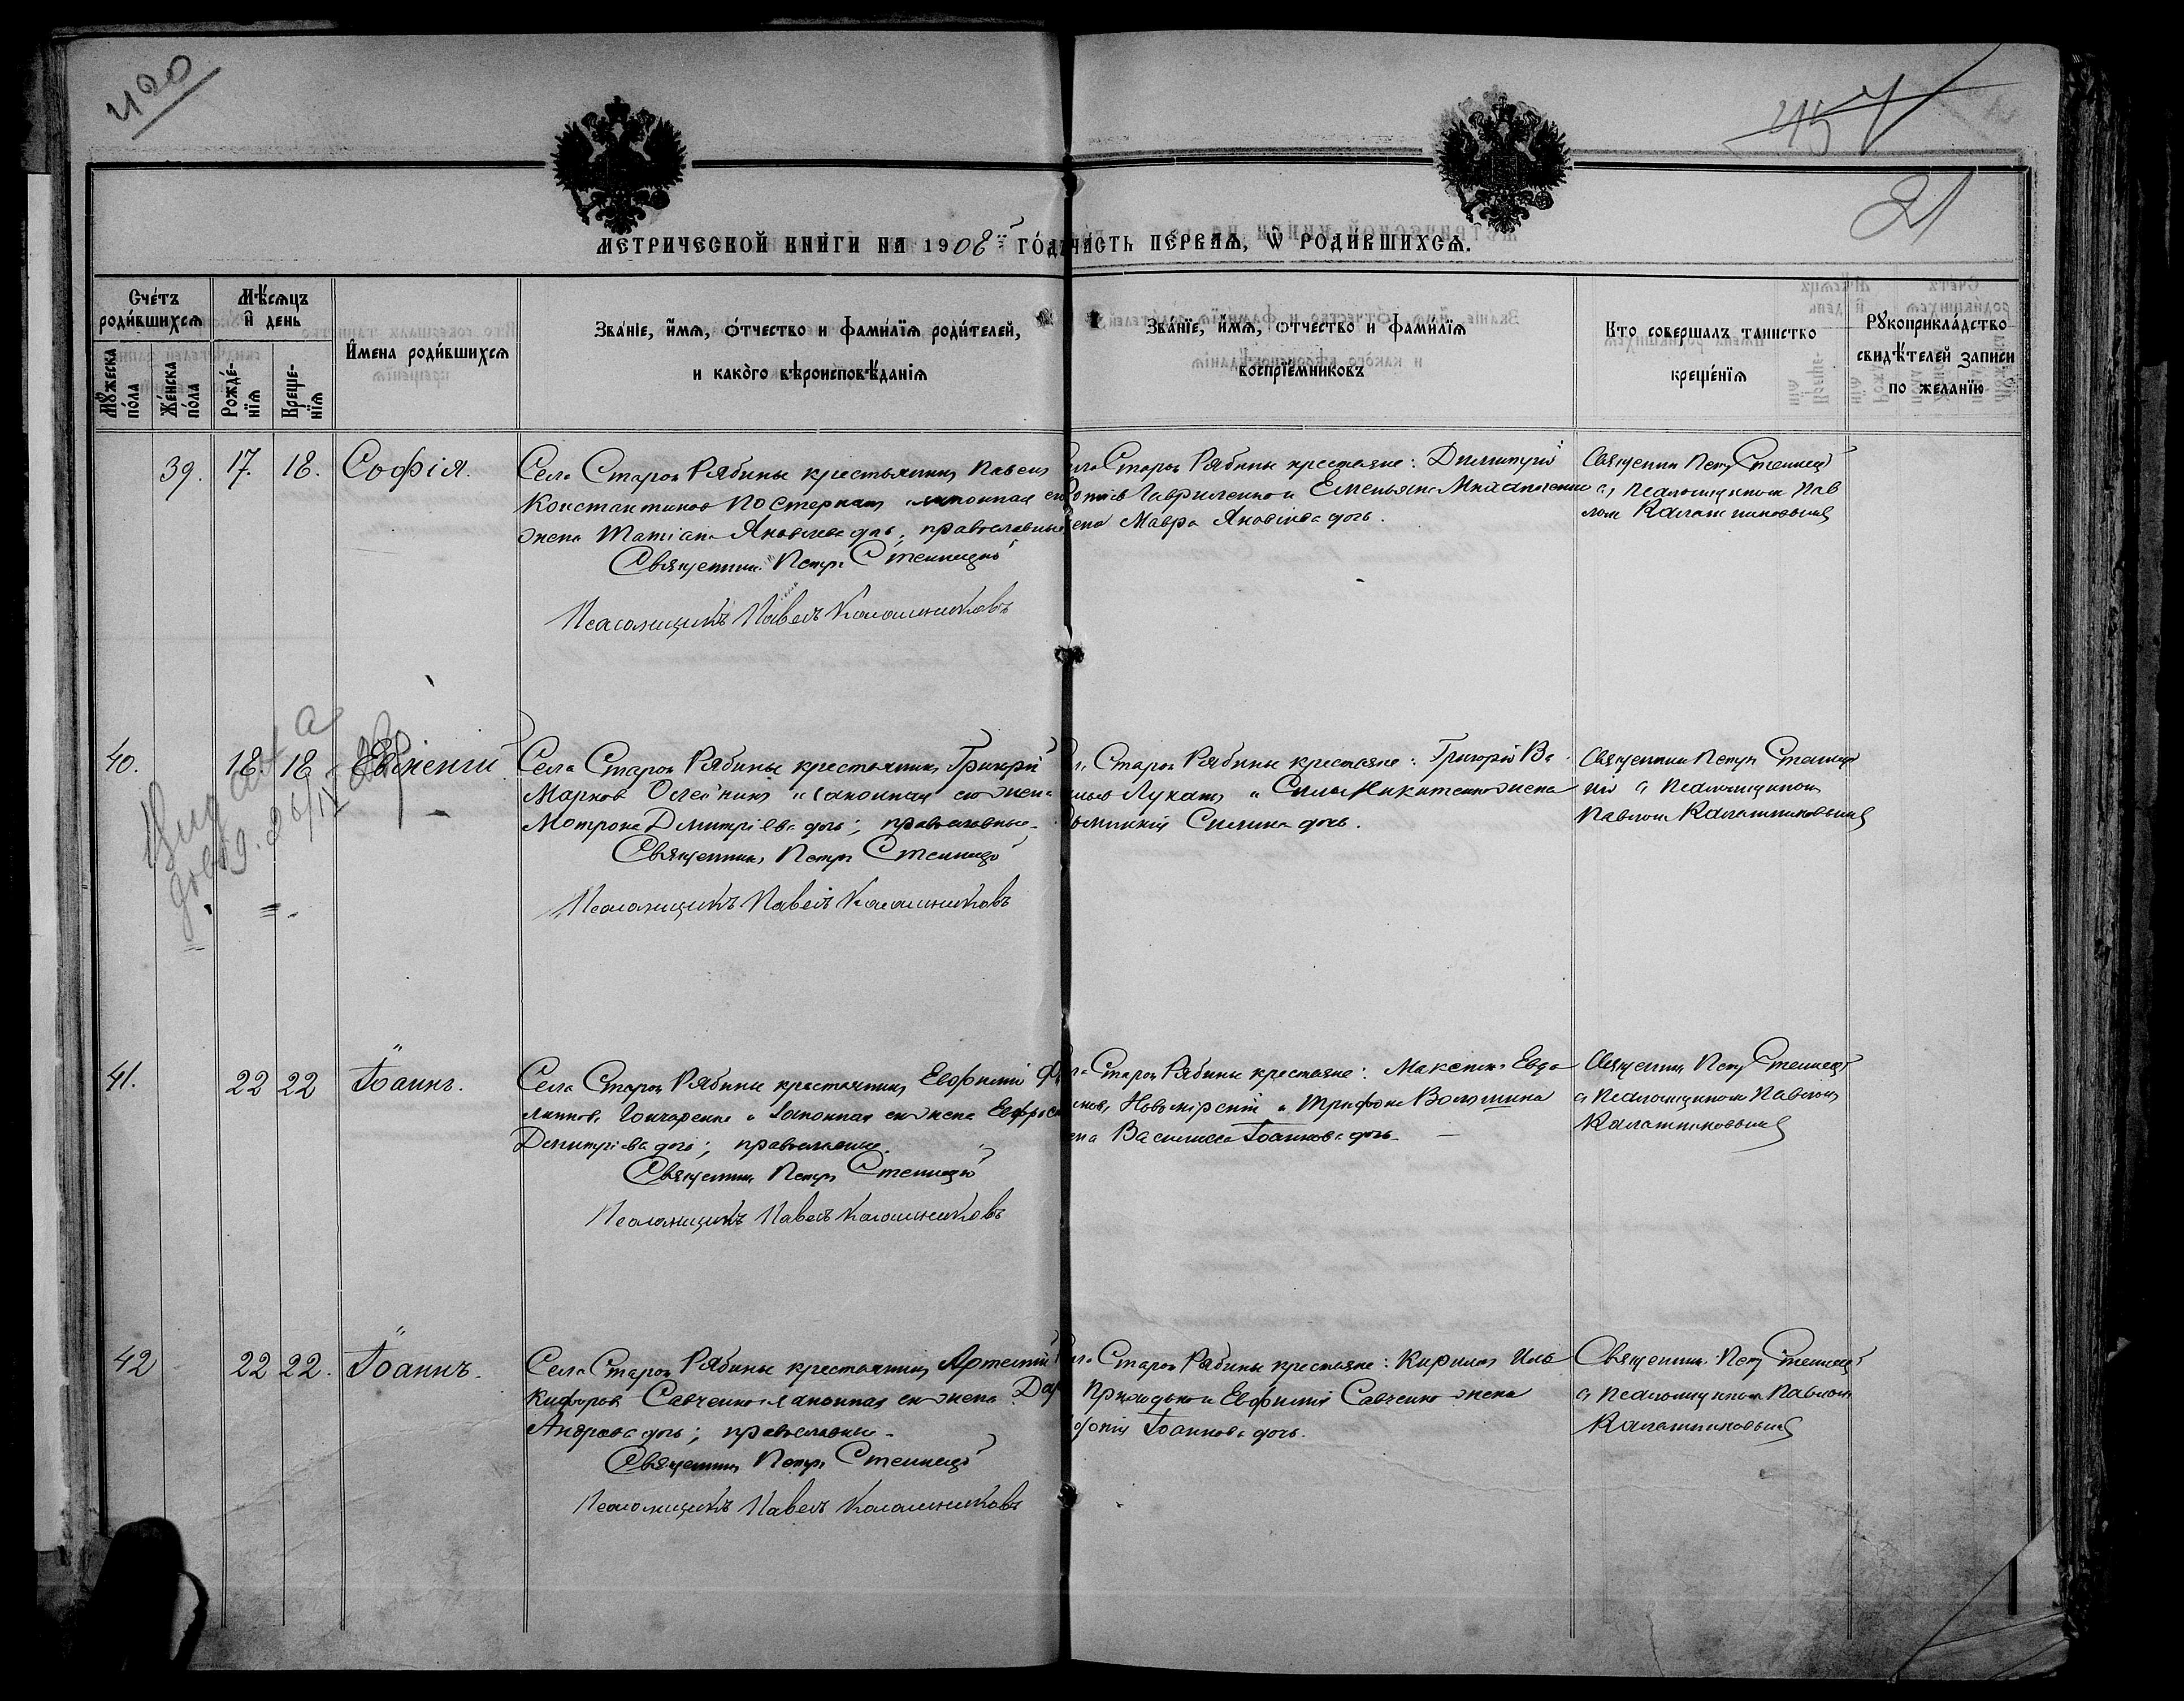 420
457
21
МЕТРИЧЕСКОЙ КНИГИ НА 1908й ГОДЪ ЧАСТЬ ПЕРВАЯ, Ѡ РОДИВШИХСЯ.
Счетъ родившихся
Мѣсяцъ и день
Мужеска пола
Женска пола
Рождения
Крещенія
Имена родившихся
Званіе, имя, отчество и фамилія родителей,
и какого вѣроисповѣданія
Званіе, имя, отчество и фамилія
воспріемниковъ
Кто совершалъ таинство
крещенія
Рукоприкладство
свидѣтелей записи
по желанію
39. 17. 18. Софія.
Села Старой Рябины крестьянинъ Павелъ
Константиновъ Постернакъ и законная его
жена Татіана Яковлева дочь; православные
Священник Петръ Стеницкій
Псаломщикъ Павелъ Калашниковъ
Села Старой Рябины крестьяне: Димитрій
Гавриленко и Емельяна Михайленко
жена Мавра Яковлева дочь.
Священник Петръ Стеницкій
съ псаломщикомъ Пав
ломъ Калашниковымъ
40. 18. 18 Евгеній
Села Старой Рябины крестьянинъ Григорій
Марков Олейникъ и законная его жена
Мотрона Димитріева дочь; православные.
Священникъ Петръ Стеницкій
Псаломщикъ Павелъ Калашниковъ
Старой Рябины крестьяне: Григорій Ва
Лукачъ и Силы Никитенко жена
Силина дочь.
Священник Петръ Стениц
кій съ псаломщикомъ
Павломъ Калашниковымъ
41. 22 22 Іоаннъ.
Села Старой Рябины крестьянинъ Евфимій
Гончаренко и законная его жена Евфрос
Димитріева дочь; православные.
Священник Петръ Стеницкій
Псаломщикъ Павелъ Калашниковъ
Старой Рябины крестьяне: Максимъ Евдо
кимовъ Новомірскій и Трифона Волошина
жена Василиса Іоаннова дочь.
Священник Петръ Стеницкій
съ псаломщикомъ Павломъ
Калашниковымъ
42 22 22. Іоаннъ.
Села Старой Рябины крестьянинъ Артемій
Никифоровъ Савченко и законная его жена Дар
Андреева дочь; православные.
Священник Петръ Стеницкій
Псаломщикъ Павелъ Калашниковъ
Старой Рябины крестьяне: Кириллъ Иль
Приходько и Евфимія Савченко жена
Іоаннова дочь.
Священник Петръ Стеницкій
съ псаломщикомъ Павломъ
Калашниковымъ